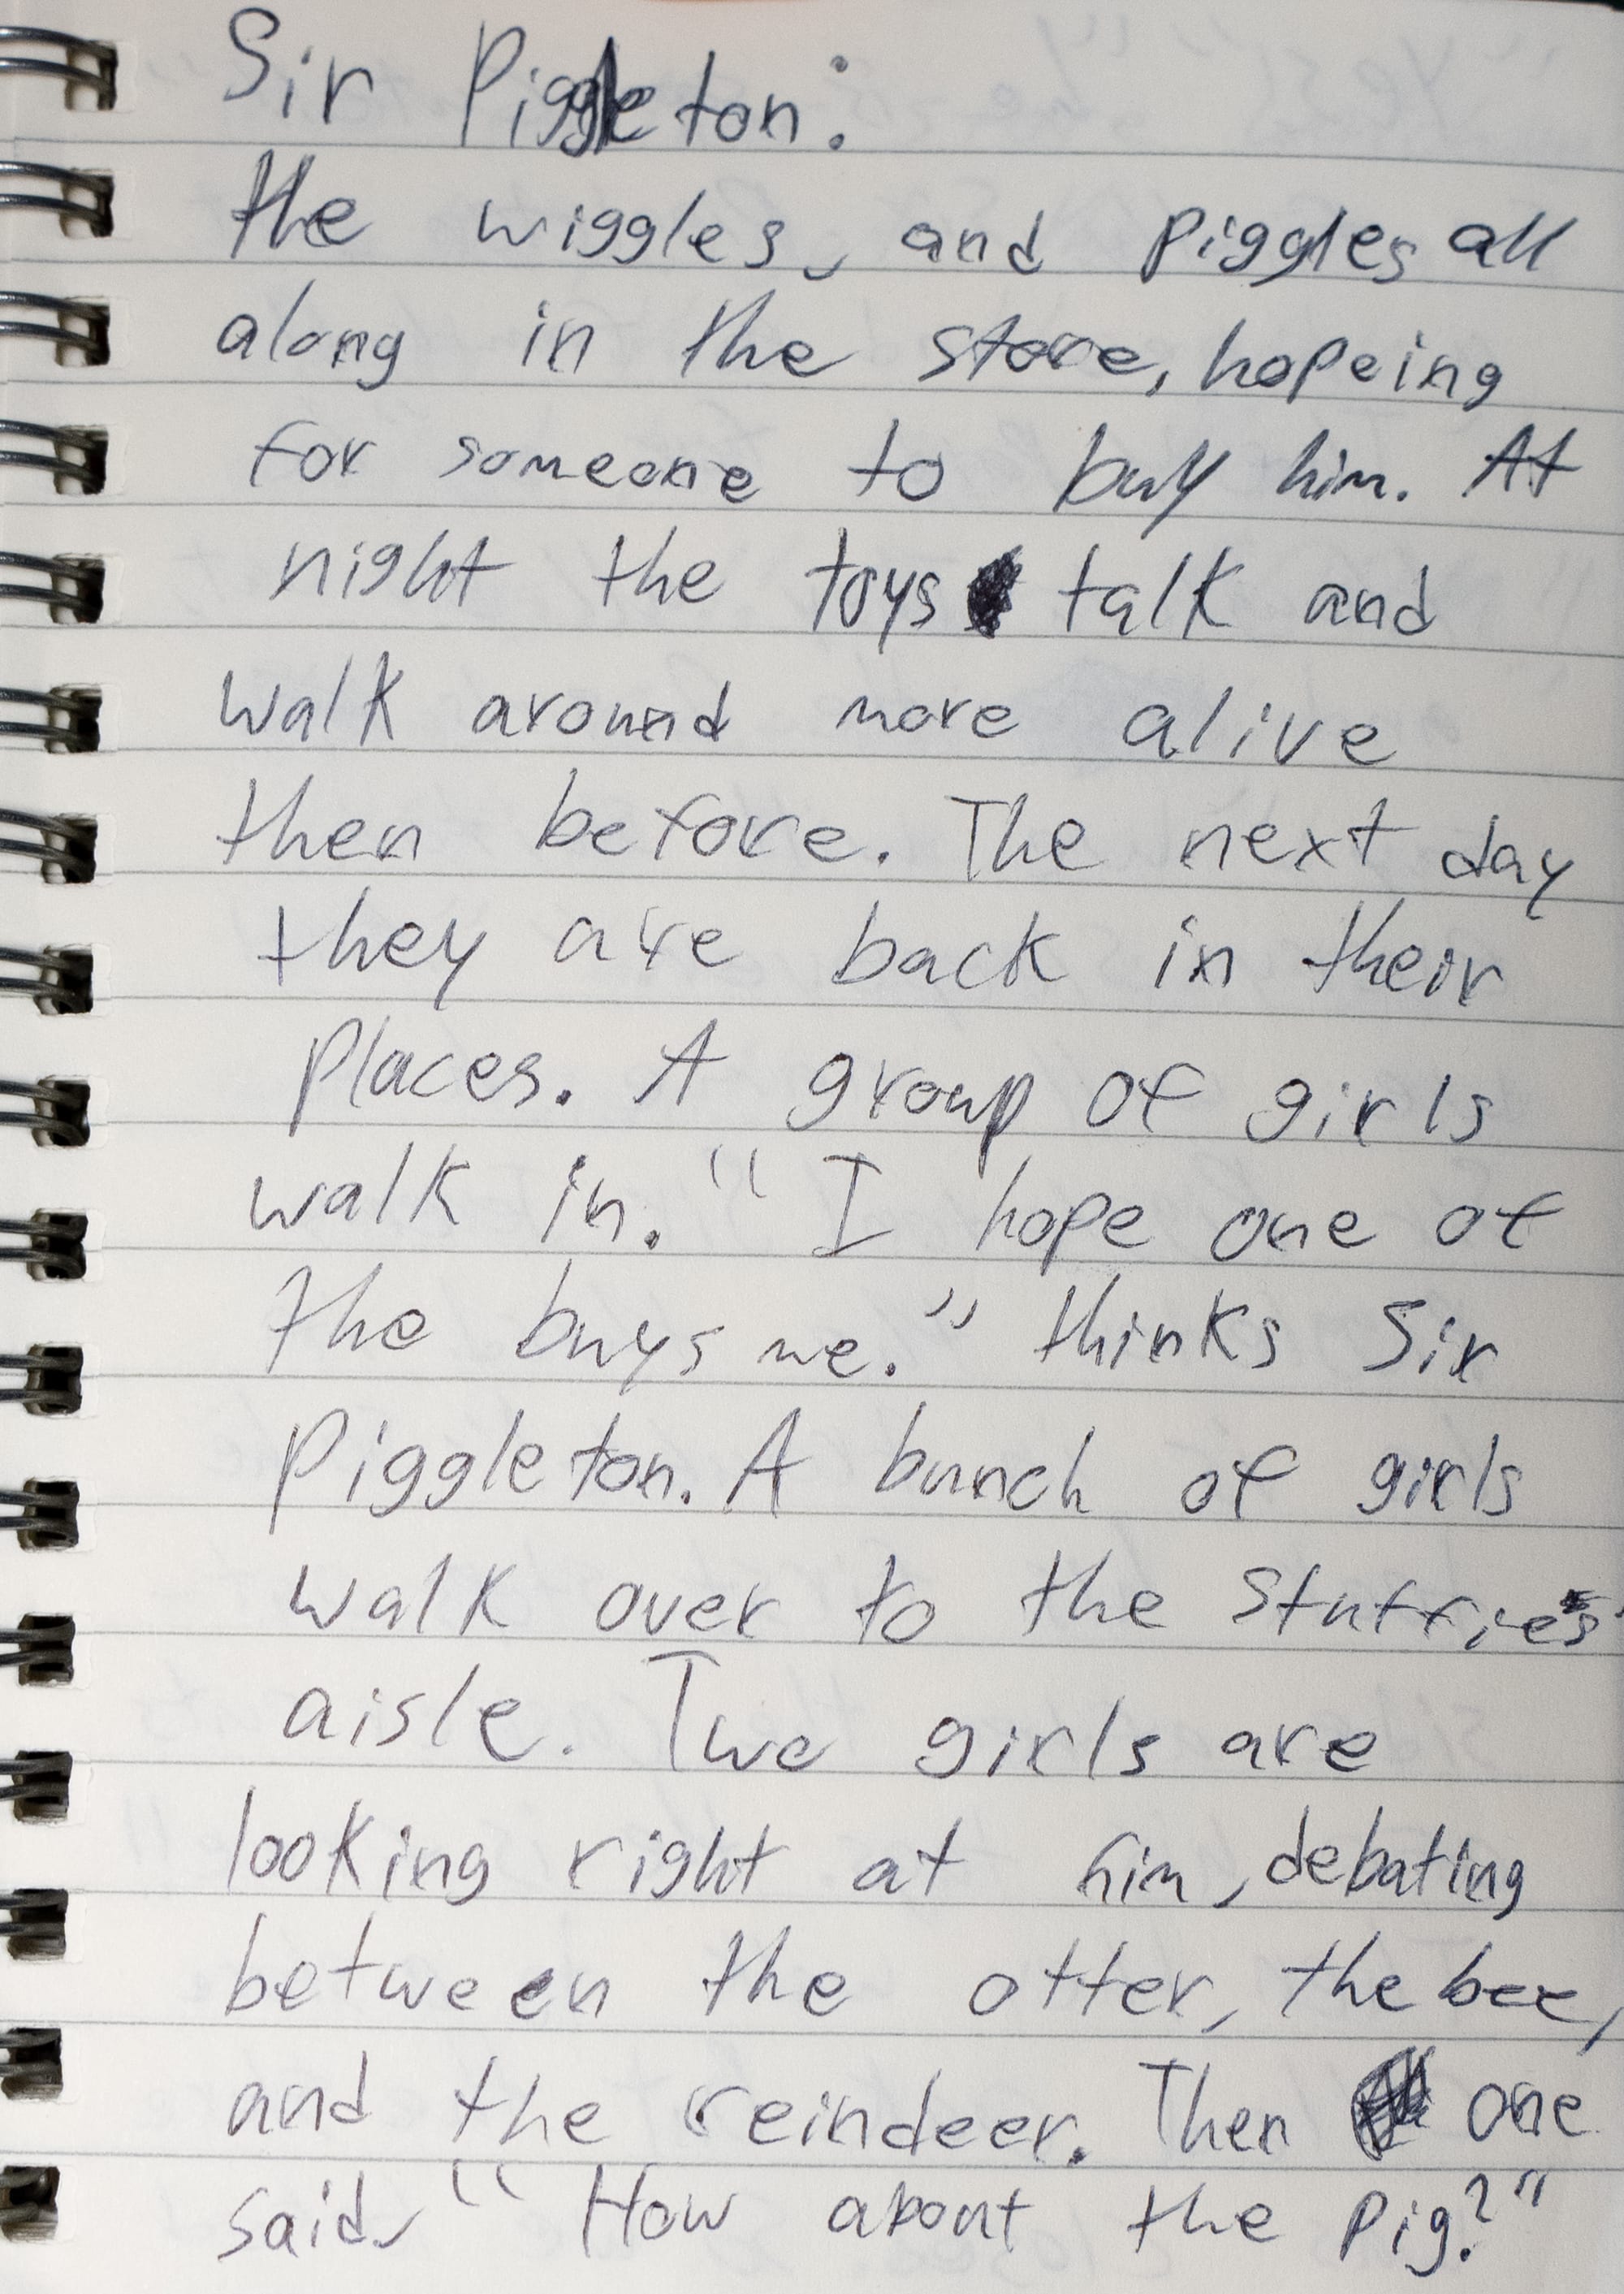 Sir Piggleton:
the wiggles, and piggles all
along in the store, hopeing
for someone to buy him. At
night the toys talk and
walk around more alive
then before. The next day
they are back in their
places. A group of girls
walk in. "I hope one of
the buys me." thinks Sir
Piggleton. A bunch of girls
walk over to the stuffies
aisle. Two girls are
looking right at him, debating
between the otter, the bee,
and the reindeer. Then one
said, "How about the pig?"